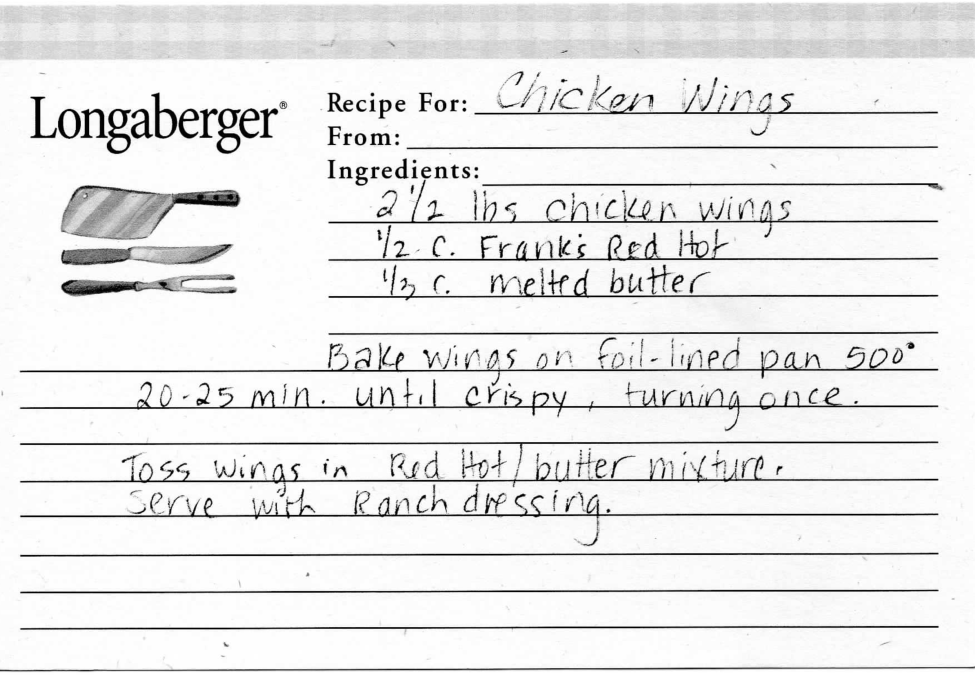 Longaberger®
Recipe For: Chicken Wings
From:
Ingredients:
2 1/2 lbs chicken wings
1/2 C. Frank's Red Hot
1/3 C. melted butter
Bake wings on foil-lined pan 500°
20-25 min. until crispy, turning once.
Toss wings in Red Hot/butter mixture.
Serve with Ranch dressing.